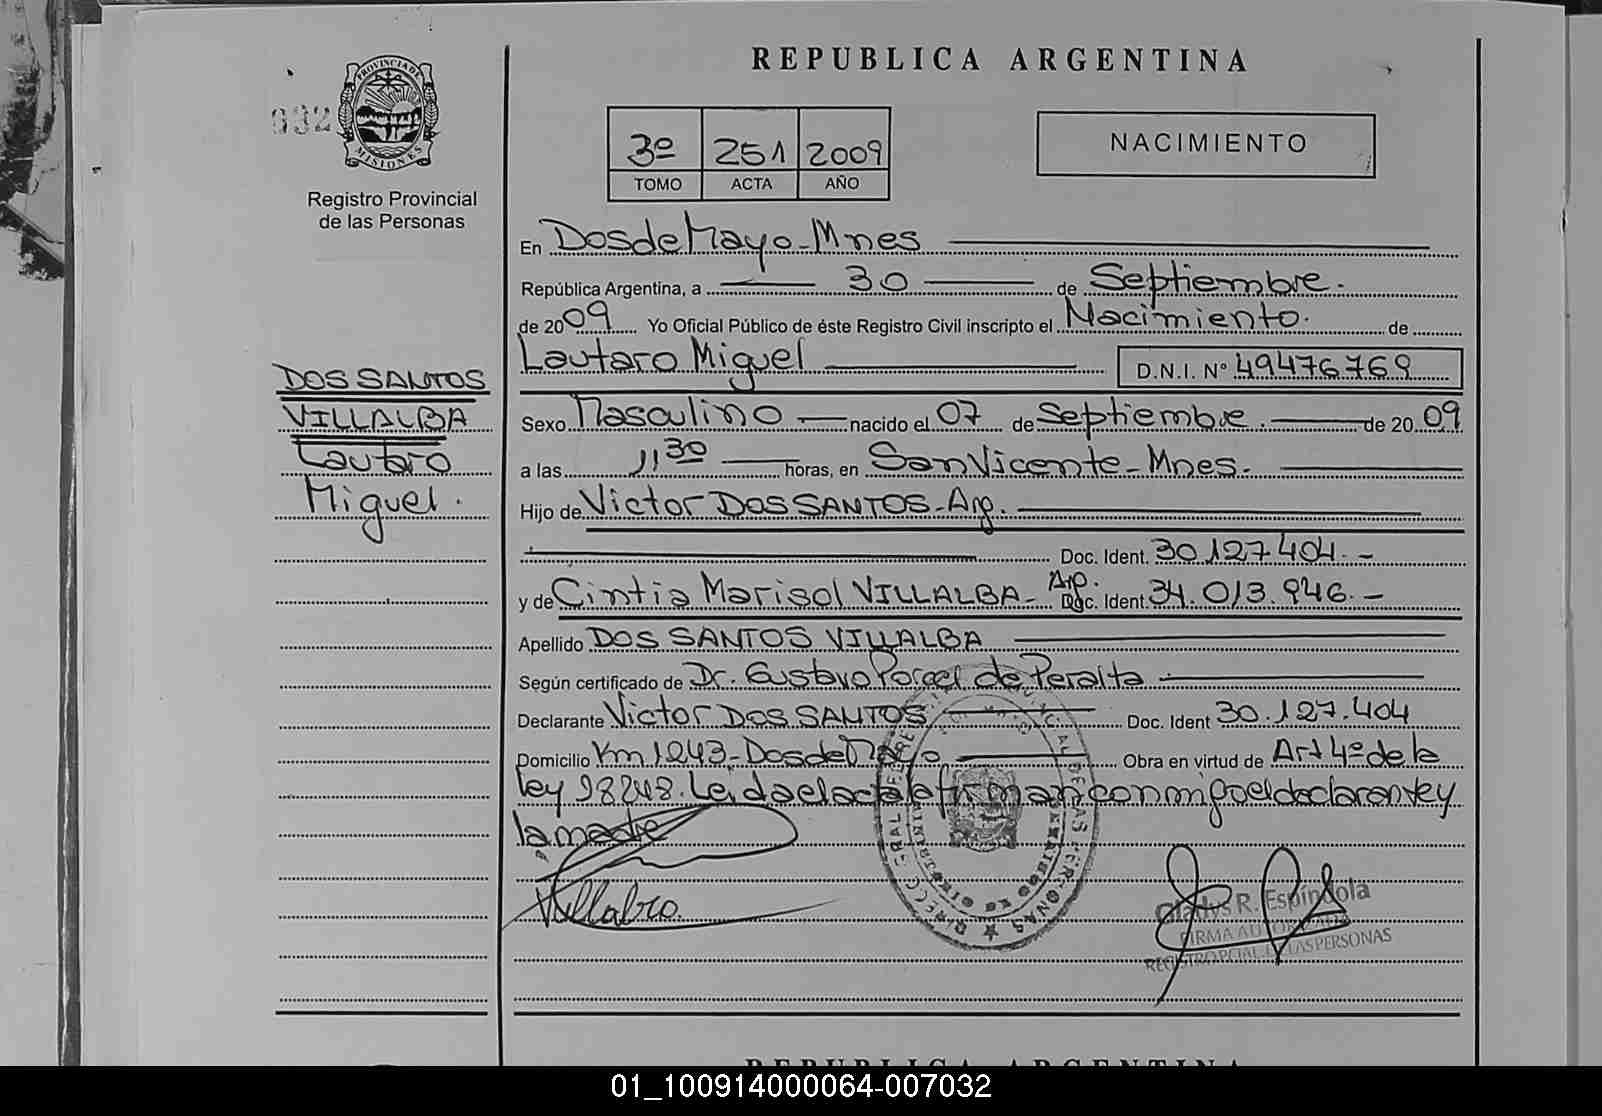 REPUBLICA ARGENTINA
PROVINCIA DE MISIONES
Registro Provincial
de las Personas
3º 251 2009
TOMO ACTA AÑO
NACIMIENTO
DOS SANTOS
VILLALBA
Lautaro
Miguel.
En Dos de Mayo - Mnes
República Argentina, a 30 de Septiembre.
de 2009 Yo Oficial Público de éste Registro Civil inscripto el Nacimiento. de
Lautaro Miguel D.N.I. Nº 49476769
Sexo Masculino nacido el 07 de Septiembre. de 2009
a las 11 30 horas, en San Vicente - Mnes.
Hijo de Victor DOS SANTOS - Arg.
Doc. Ident. 30.127.404. -
y de Cintia Marisol VILLALBA - Arg. Doc. Ident. 34.013.946. -
Apellido DOS SANTOS VILLALBA
Según certificado de Dr. Gustavo Porcel de Peralta
Declarante Victor DOS SANTOS Doc. Ident 30.127.404
Domicilio Km 1243 - Dos de Mayo Obra en virtud de Art 4º de la
ley 18248. Leida el acta la firman conmigo el declarante y
la madre
Villalba.
Gladys R. Espíndola
FIRMA AUTORIZADA
REGISTRO PCIAL. DE LAS PERSONAS
REPUBLICA ARGENTINA
01_100914000064-007032